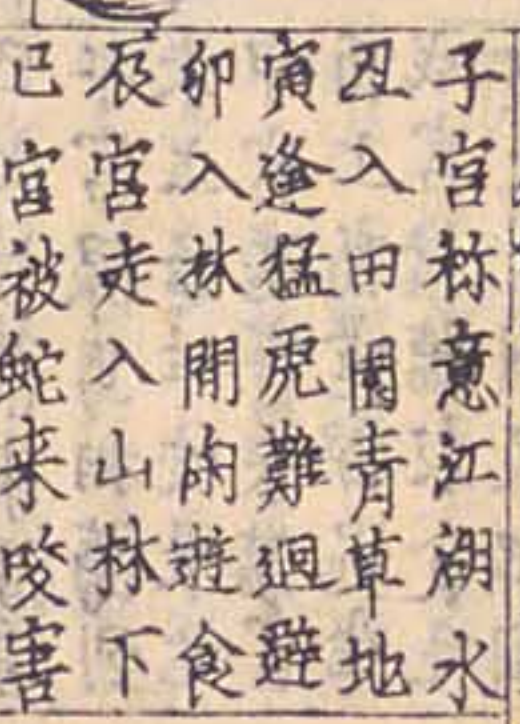 子宫称意江湖水
丑入田園青草地
寅逢猛虎難迴避
卯入林間閙遊食
辰宫走入山林下
巳宫被蛇来咬害